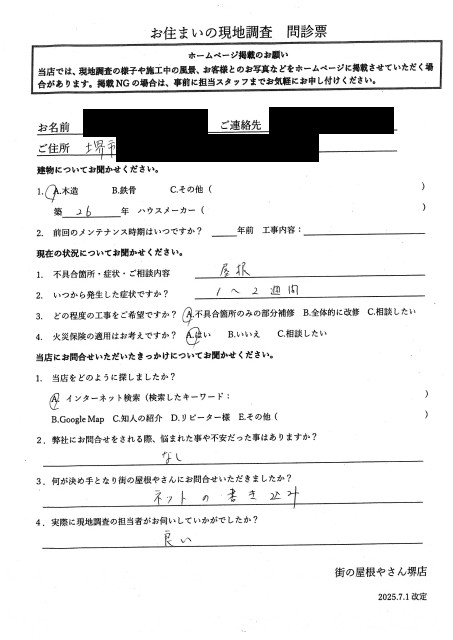 お住まいの現地調査　問診票
ホームページ掲載のお願い
当店では、現地調査の様子や施工中の風景、お客様とのお写真などをホームページに掲載させていただく場
合があります。掲載NGの場合は、事前に担当スタッフまでお気軽にお申し付けください。
お名前　ご連絡先
ご住所　堺市
建物についてお聞かせください。
1. A.木造　B.鉄骨　C.その他（　）
築 26 年　ハウスメーカー（　）
2. 前回のメンテナンス時期はいつですか？ ＿＿年前　工事内容：
現在の状況についてお聞かせください。
1. 不具合箇所・症状・ご相談内容　屋根
2. いつから発生した症状ですか？　1〜2週間
3. どの程度の工事をご希望ですか？ A.不具合箇所のみの部分補修　B.全体的に改修　C.相談したい
4. 火災保険の適用はお考えですか？ A.はい　B.いいえ　C.相談したい
当店にお問合せいただいたきっかけについてお聞かせください。
1. 当店をどのように探しましたか？
A. インターネット検索（検索したキーワード：　）
B.Google Map　C.知人の紹介　D.リピーター様　E.その他（　）
2. 弊社にお問合せをされる際、悩まれた事や不安だった事はありますか？
なし
3. 何が決め手となり街の屋根やさんにお問合せいただきましたか？
ネットの書き込み
4. 実際に現地調査の担当者がお伺いしていかがでしたか？
良い
街の屋根やさん堺店
2025.7.1 改定